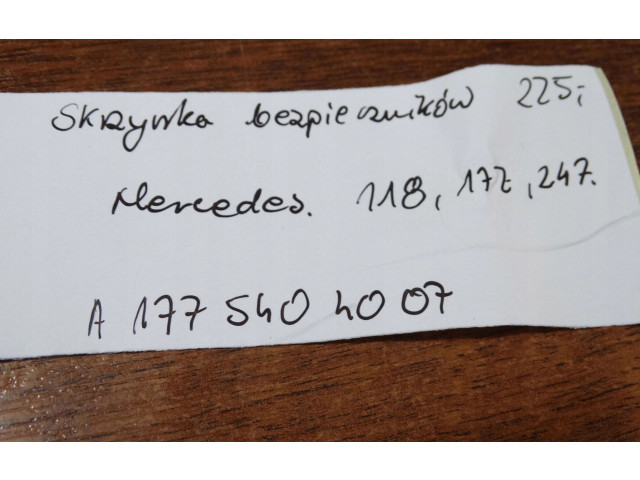 Skrzynka bezpieczników 225,-
Mercedes. 118, 177, 247.
A 177 540 40 07